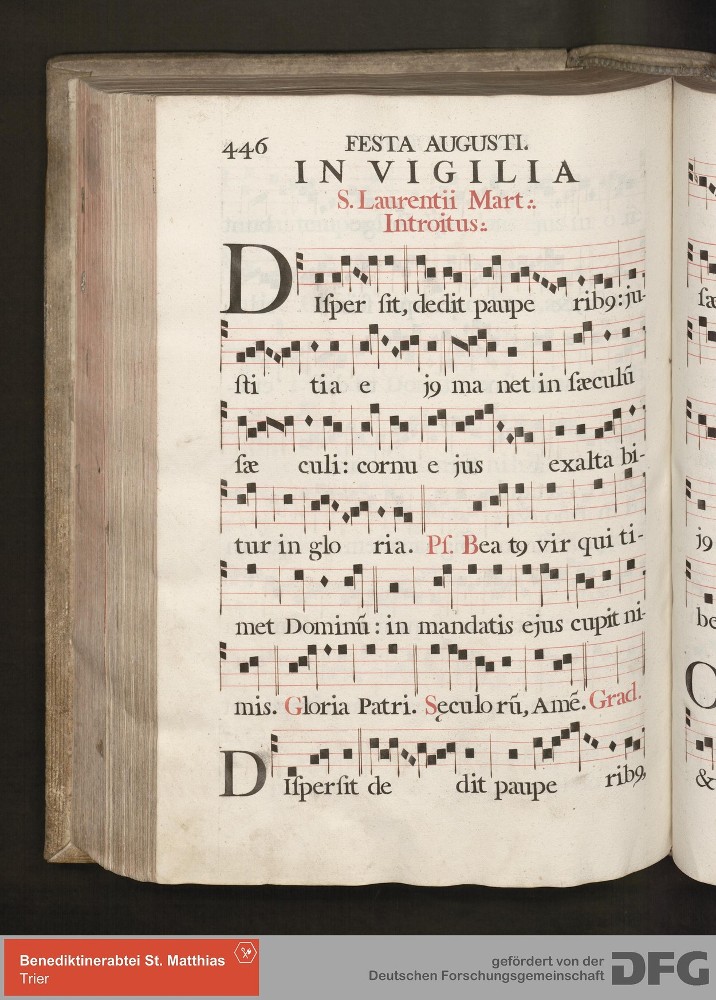 446 FESTA AUGUSTI.
IN VIGILIA
S. Laurentii Mart.:.
Introitus:.
DIſper ſit, dedit paupe rib9: ju-
ſti tia e j9 ma net in ſæculū
ſæ culi: cornu e jus exalta bi-
tur in glo ria. Pſ. Bea t9 vir qui ti-
met Dominū: in mandatis ejus cupit ni-
mis. Gloria Patri. Sęculo rū, Amē. Grad.
DIſperſit de dit paupe rib9,
ſæ
j9
be
&
Benediktinerabtei St. Matthias
Trier
gefördert von der
Deutschen Forschungsgemeinschaft
DFG